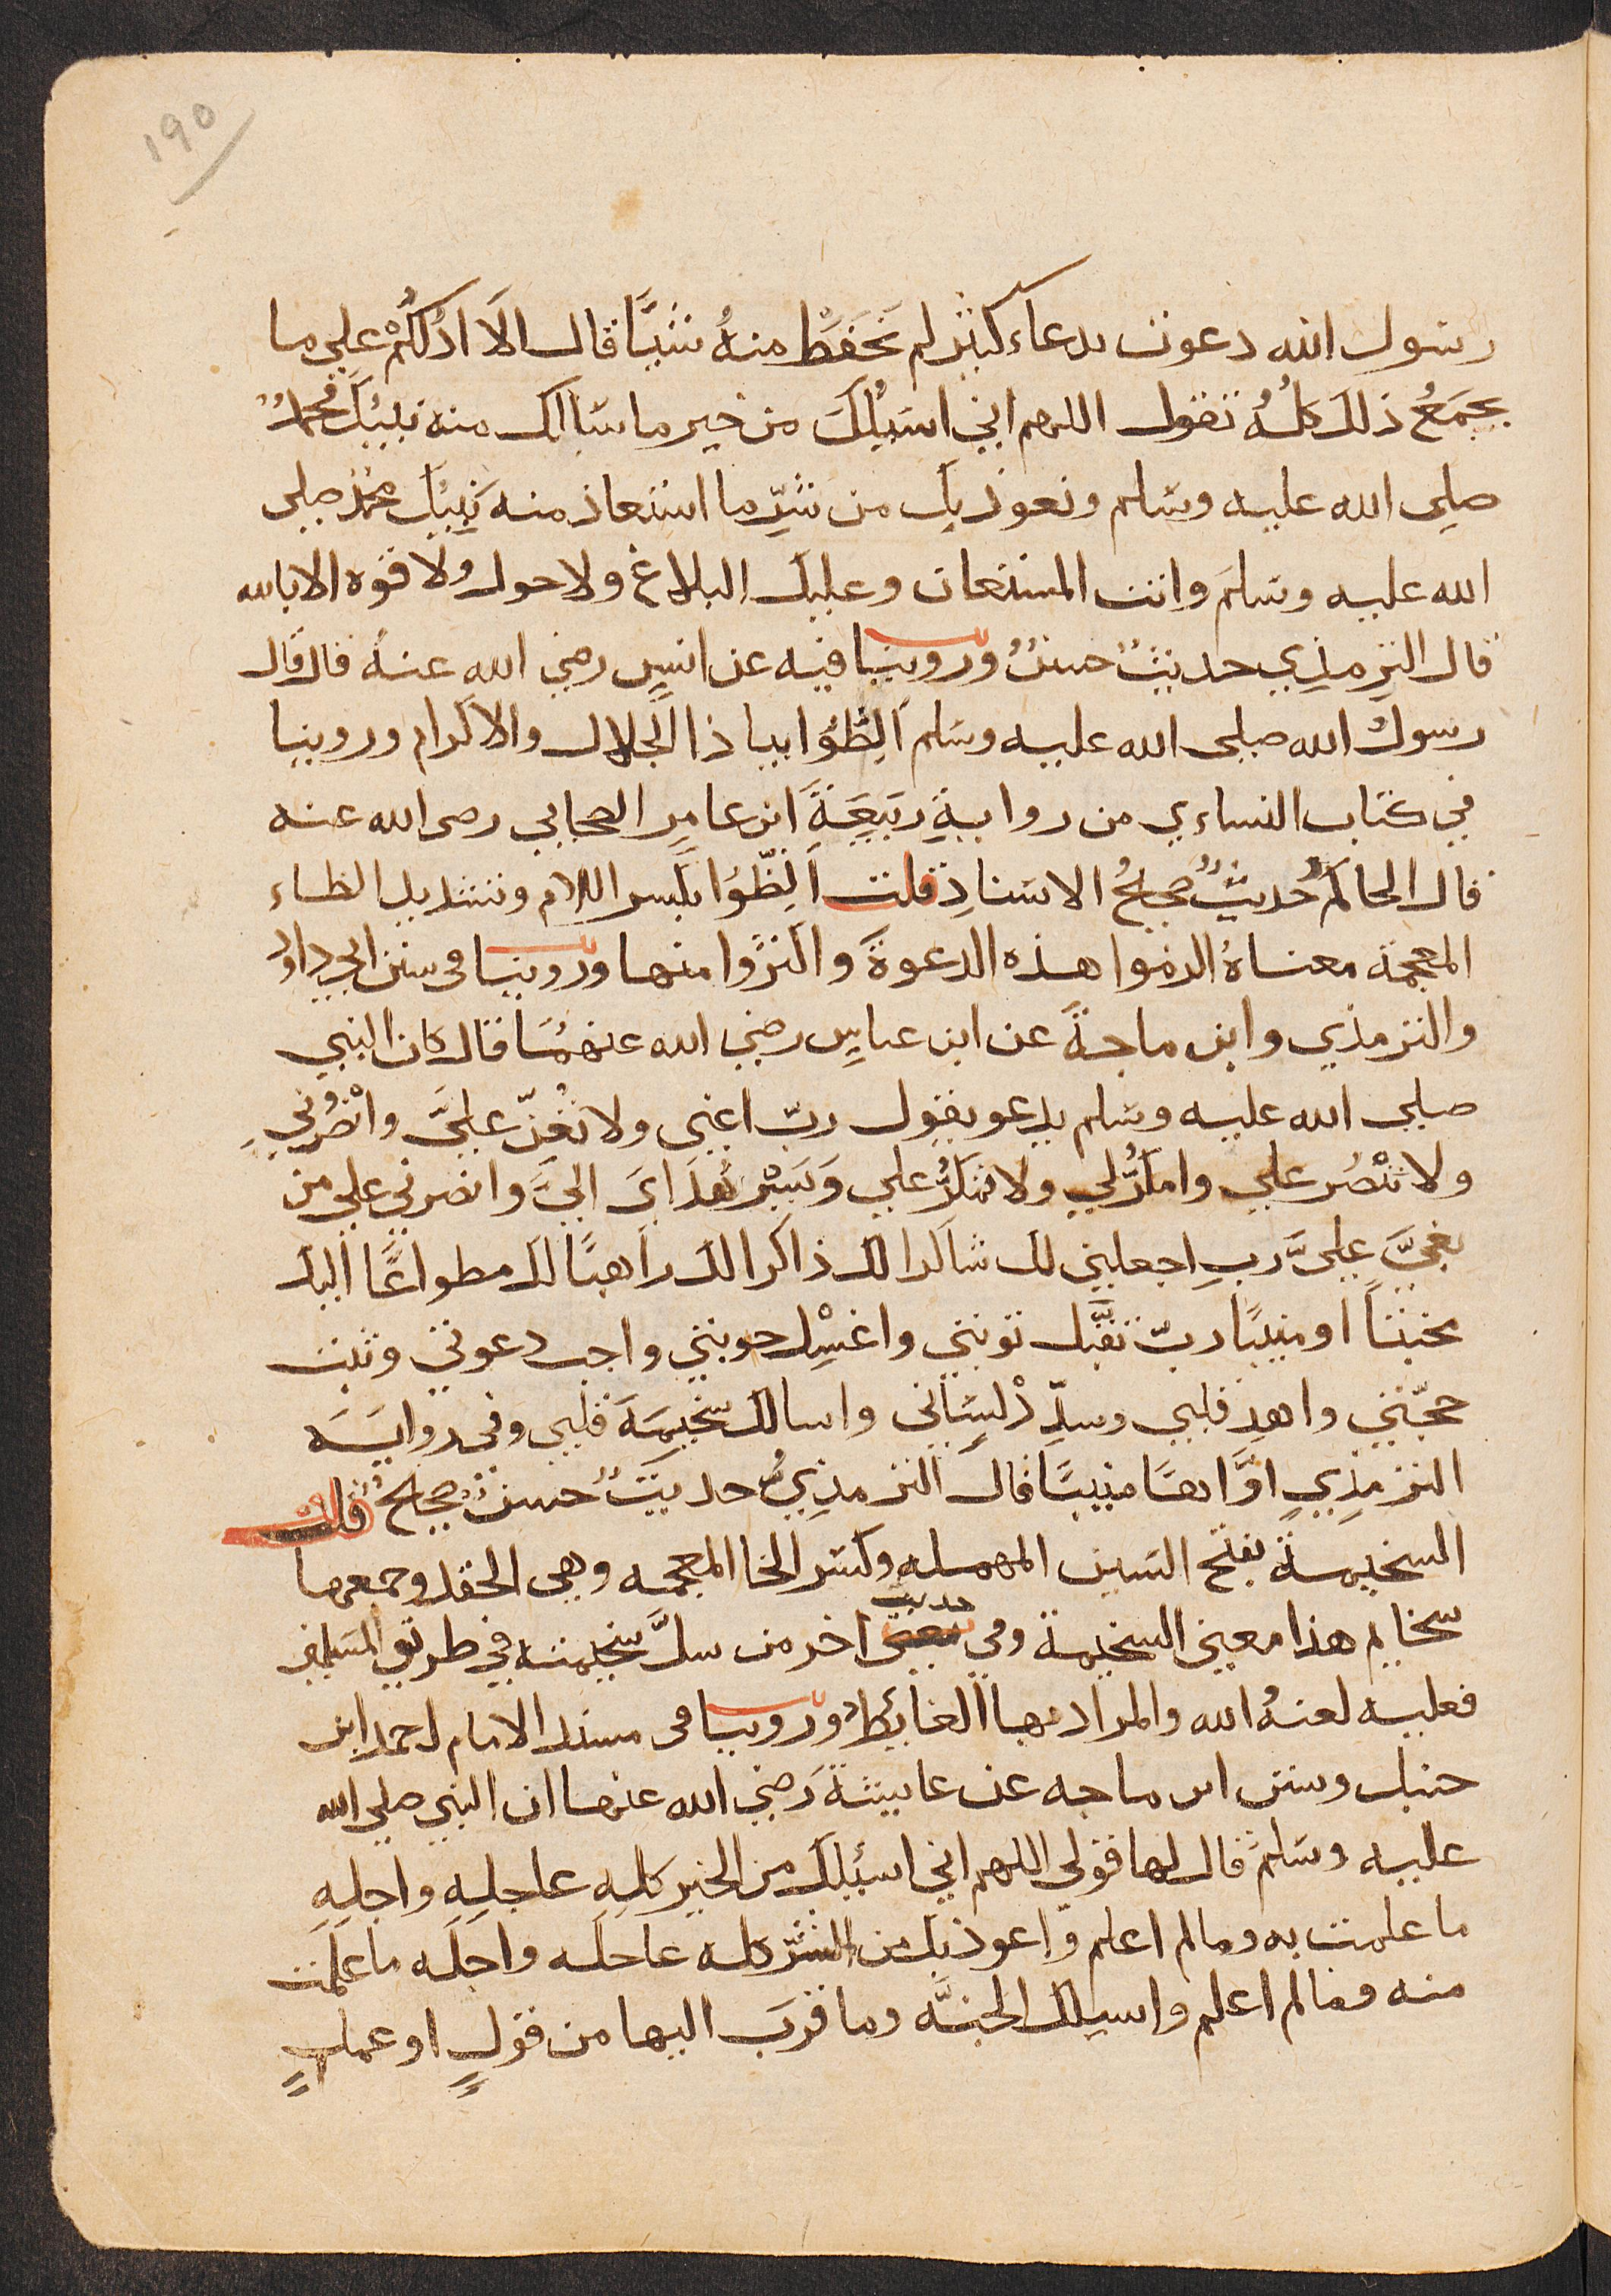 190
رسول الله دعوت بدعاء كثير لم نَحفَظْ منهُ شيئًا قال الَا ادُلكُمْ علي ما
يجمَعُ ذلك كلُّهُ تقول اللهم اني اسَيُلكَ من خير ما سَاالك منه نبيُكَ محمدٌ
صلي الله عليه وسَلم ونعوذ بك من شرِّ ما استعاذ منه نَبِيُكَ محمدٌ صلى
الله عليه وسَلمَ وانت المستعان وعليك البلاغ ولا حول ولا قوه الا بالله
قال الترِمذِي حديثٌ حسنٌ وروينا فيه عن انسٍ رضي الله عنهُ قال قال
رسولُ الله صلى الله عليه وسَلم اَلِظُّوا بيا ذا الجلالِ والاكرام وروينا
في كتاب النساءي من روايةِ رَبيعَةَ ابن عامِرِ الصحابي رضى الله عنه
قال الحاكمُ حديثٌ صحيحُ الاسَنادِ قلت اَلِظّوُا بكَسر اللام وتشديد الظاء
المعجمة معناهُ الزموا هذه الدعوةَ واكثرُوا منها وروينا فى سنن ابي داودَ
والترمذي وابن ماجةَ عن ابن عباسٍ رضي الله عنهمُا قال كان النبي
صلي الله عليه وسَلم يدعو يقول ربّ اعني ولا تُعِنّ عليَّ وانْصُرْنِي
ولا تنْصُر علي وامكُرْ لي ولا تمكُرْ علي وَيَسِّر هُدَايَ اليَّ وانصرني علي من
بغيَّ عليَّ ربِ اجعلني لك شاكرا لك ذاكرا لك راهبًا لك مطواعًا اليك
مخبتاً او منيبًا ربّ تقبَّل توبتي واغسِْل حوبتي واجب دعوتي وثبت
حجّتي واهدِ قلبي وسدِّدْ لِسَاني واسالك سخيمَةَ قلبي وفي روايَةَ
الترمِذِي اوَّاهًا منيبًا قال الترمذِيُّ حديثٌ حسنٌ صحيحٌ قلت
السخيمة بفتح السَين المهمله وكسَر الخا المعجمه وهى الحقد وجمعها
سخايم هذا معني السخيمة وفى حديث اخر من سلَّ سَخيمته في طريق المسَلمين
فعليه لعنهُ الله والمراد بها الغائط وروينا فى مسند الامام احمد ابن
حنبل وسنن ابن ماجه عن عايشةَ رَضي الله عنها ان النبي صلي الله
عليه وسَلمَ قال لها قولى اللهم اني اسئلكَ من الخير كلِهِ عاجلِه واجلِهِ
ما علمت به وما لم اعلم واعوذ بك من الشرِّ كله عاجله واجلِه ما علمت
منه وما لم اعلم واسيلك الجنَّه وما قربَ اليها من قولٍ او عملٍ